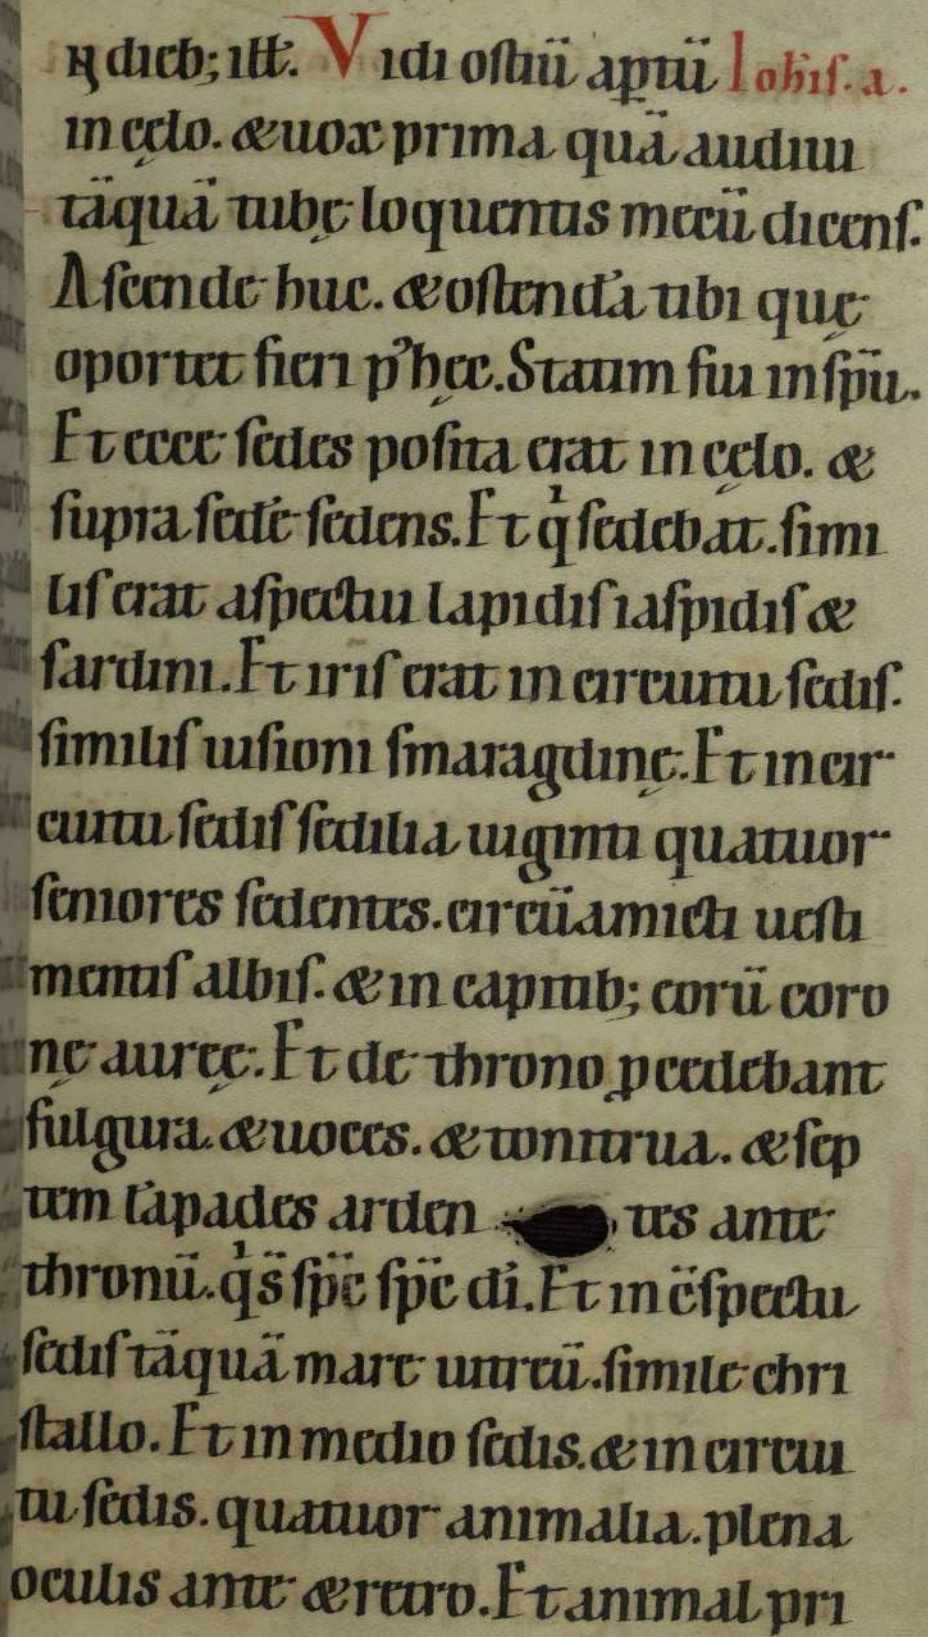 IN dieb; ill. Vidi ostiū aptū Iohis. a.
in cęlo. & uox prima quā audiui
tāquā tubę loquentis mecū dicens.
Ascende huc. & ostendā tibi quę
oportet fieri p' hęc. Statim fui in spū.
Et ecce sedes posita erat in cęlo. &
supra sedē sedens. Et qͥ sedebat. simi
lis erat aspectui lapidis iaspidis &
sardini. Et iris erat in circuitu sedis.
similis uisioni smaragdinę. Et in cir
cuitu sedis sedilia uiginti quatuor
seniores sedentes. circūamicti uesti
mentis albis. & in capitib; eorū coro
nę aureę. Et de throno ꝓcedebant
fulgura. & uoces. & tonitrua. & sep
tem lāpades arden tes ante
thronū. qͥ s̄ spc̄ spc̄ di. Et in c̄spectu
sedis tāquā mare uitreū. simile chri
stallo. Et in medio sedis. & in circui
tu sedis. quatuor animalia. plena
oculis ante & retro. Et animal pri